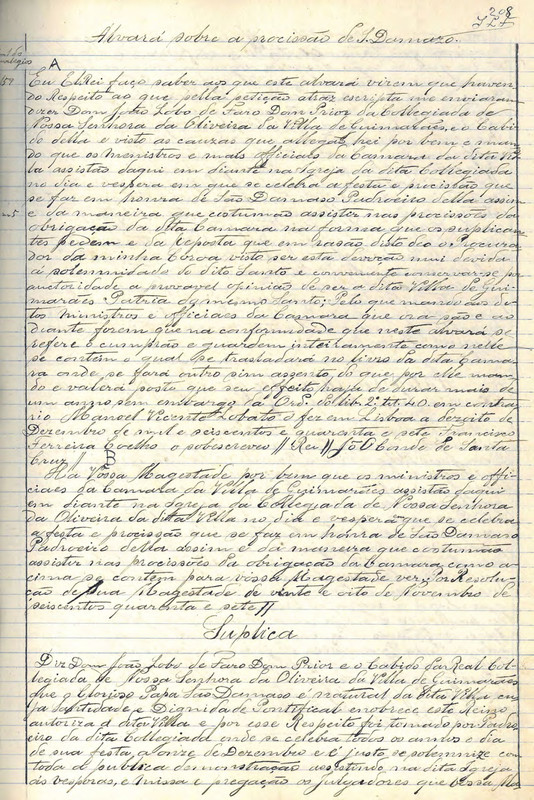 208
Alvará sobre a procissão de S. Damazo.
A
Eu ElRei faço saber aos que este alvará virem que haven
do Respeito ao que pella petição atraz escripta me enviaram
dizer Dom João Lobo de Faro Dom Prior da Collegiada de
Nossa Senhora da Oliveira da Villa de Guimarães, e o Cabi
do della e visto as cauzas que allegão hei por bem e man
do que os Ministros e mais officiaes da Camara da dita Vi
la assistão daqui em diante na Igreja da dita Collegiada
no dia e vespera em que se celebra a festa e procissão que
se faz em honra de São Damaso Padroeiro della assim
e da maneira que costumão assistir nas procissões da
obrigação da dita Camara na forma que os suplican
tes pedem e da reposta que em rasão disto deo o Procura
dor da minha Coroa visto ser esta devoção mui devida
á solemnidade do dito Santo e conveniente conservar-se por
auctoridade a provavel opinião de ser a dita Villa de Gui
marães Patria do mesmo Santo; Pelo que mando aos di
tos Ministros e officiaes da Camara que ora são e ao
diante forem que na conformidade que neste alvará se
refere o cumprão e guardem inteiramente como nelle
se contem o qual se trasladará no livro da dita Cama
ra onde se fará outro sim assento do que por elle man
do e valerá posto que seu effeito haja de durar mais de
um anno sem embargo da Ord. do lib. 2º tit. 40. em contra
rio Manoel Vicente Lobato o fez em Lisboa a dezoito de
Dezembro de mil e seiscentos e quarenta e sete Francisco
Ferreira Coelho o sobescrevi // Rei // João Conde de Santa
Cruz //
B
Ha Vossa Magestade por bem que os ministros e offi
ciaes da Camara da Villa de Guimarães assistão daqui
em diante na Igreja da Collegiada de Nossa Senhora
da Oliveira da dita Villa no dia e vespera que se celebra
a festa e procissão que se faz em honra de São Damaso
Padroeiro della assim e da maneira que costumão
assistir nas procissões da obrigação da Camara como a
cima se contem para vossa Magestade ver, Por Resolu
ção de Sua Magestade de vinte e oito de Novembro de
seiscentos quarenta e sete //
Suplica
Diz Dom João Lobo de Faro Dom Prior e o Cabido da Real Col
legiada de Nossa Senhora da Oliveira da Villa de Guimarães
que o Glorioso Papa São Damaso é natural da dita Villa cu
ja santidade e Dignidade Pontifical enobrece este Reino
autoriza a dita Villa e por esse Respeito foi tomado por Padro
eiro da dita Collegiada onde se celebra todos os annos o dia
de sua festa, a onze de Dezembro e é justo se solemnize com
toda a publica demonstração assistindo na dita Igreja
ás vesporas, e missa e pregação os Julgadores que vossa Ma